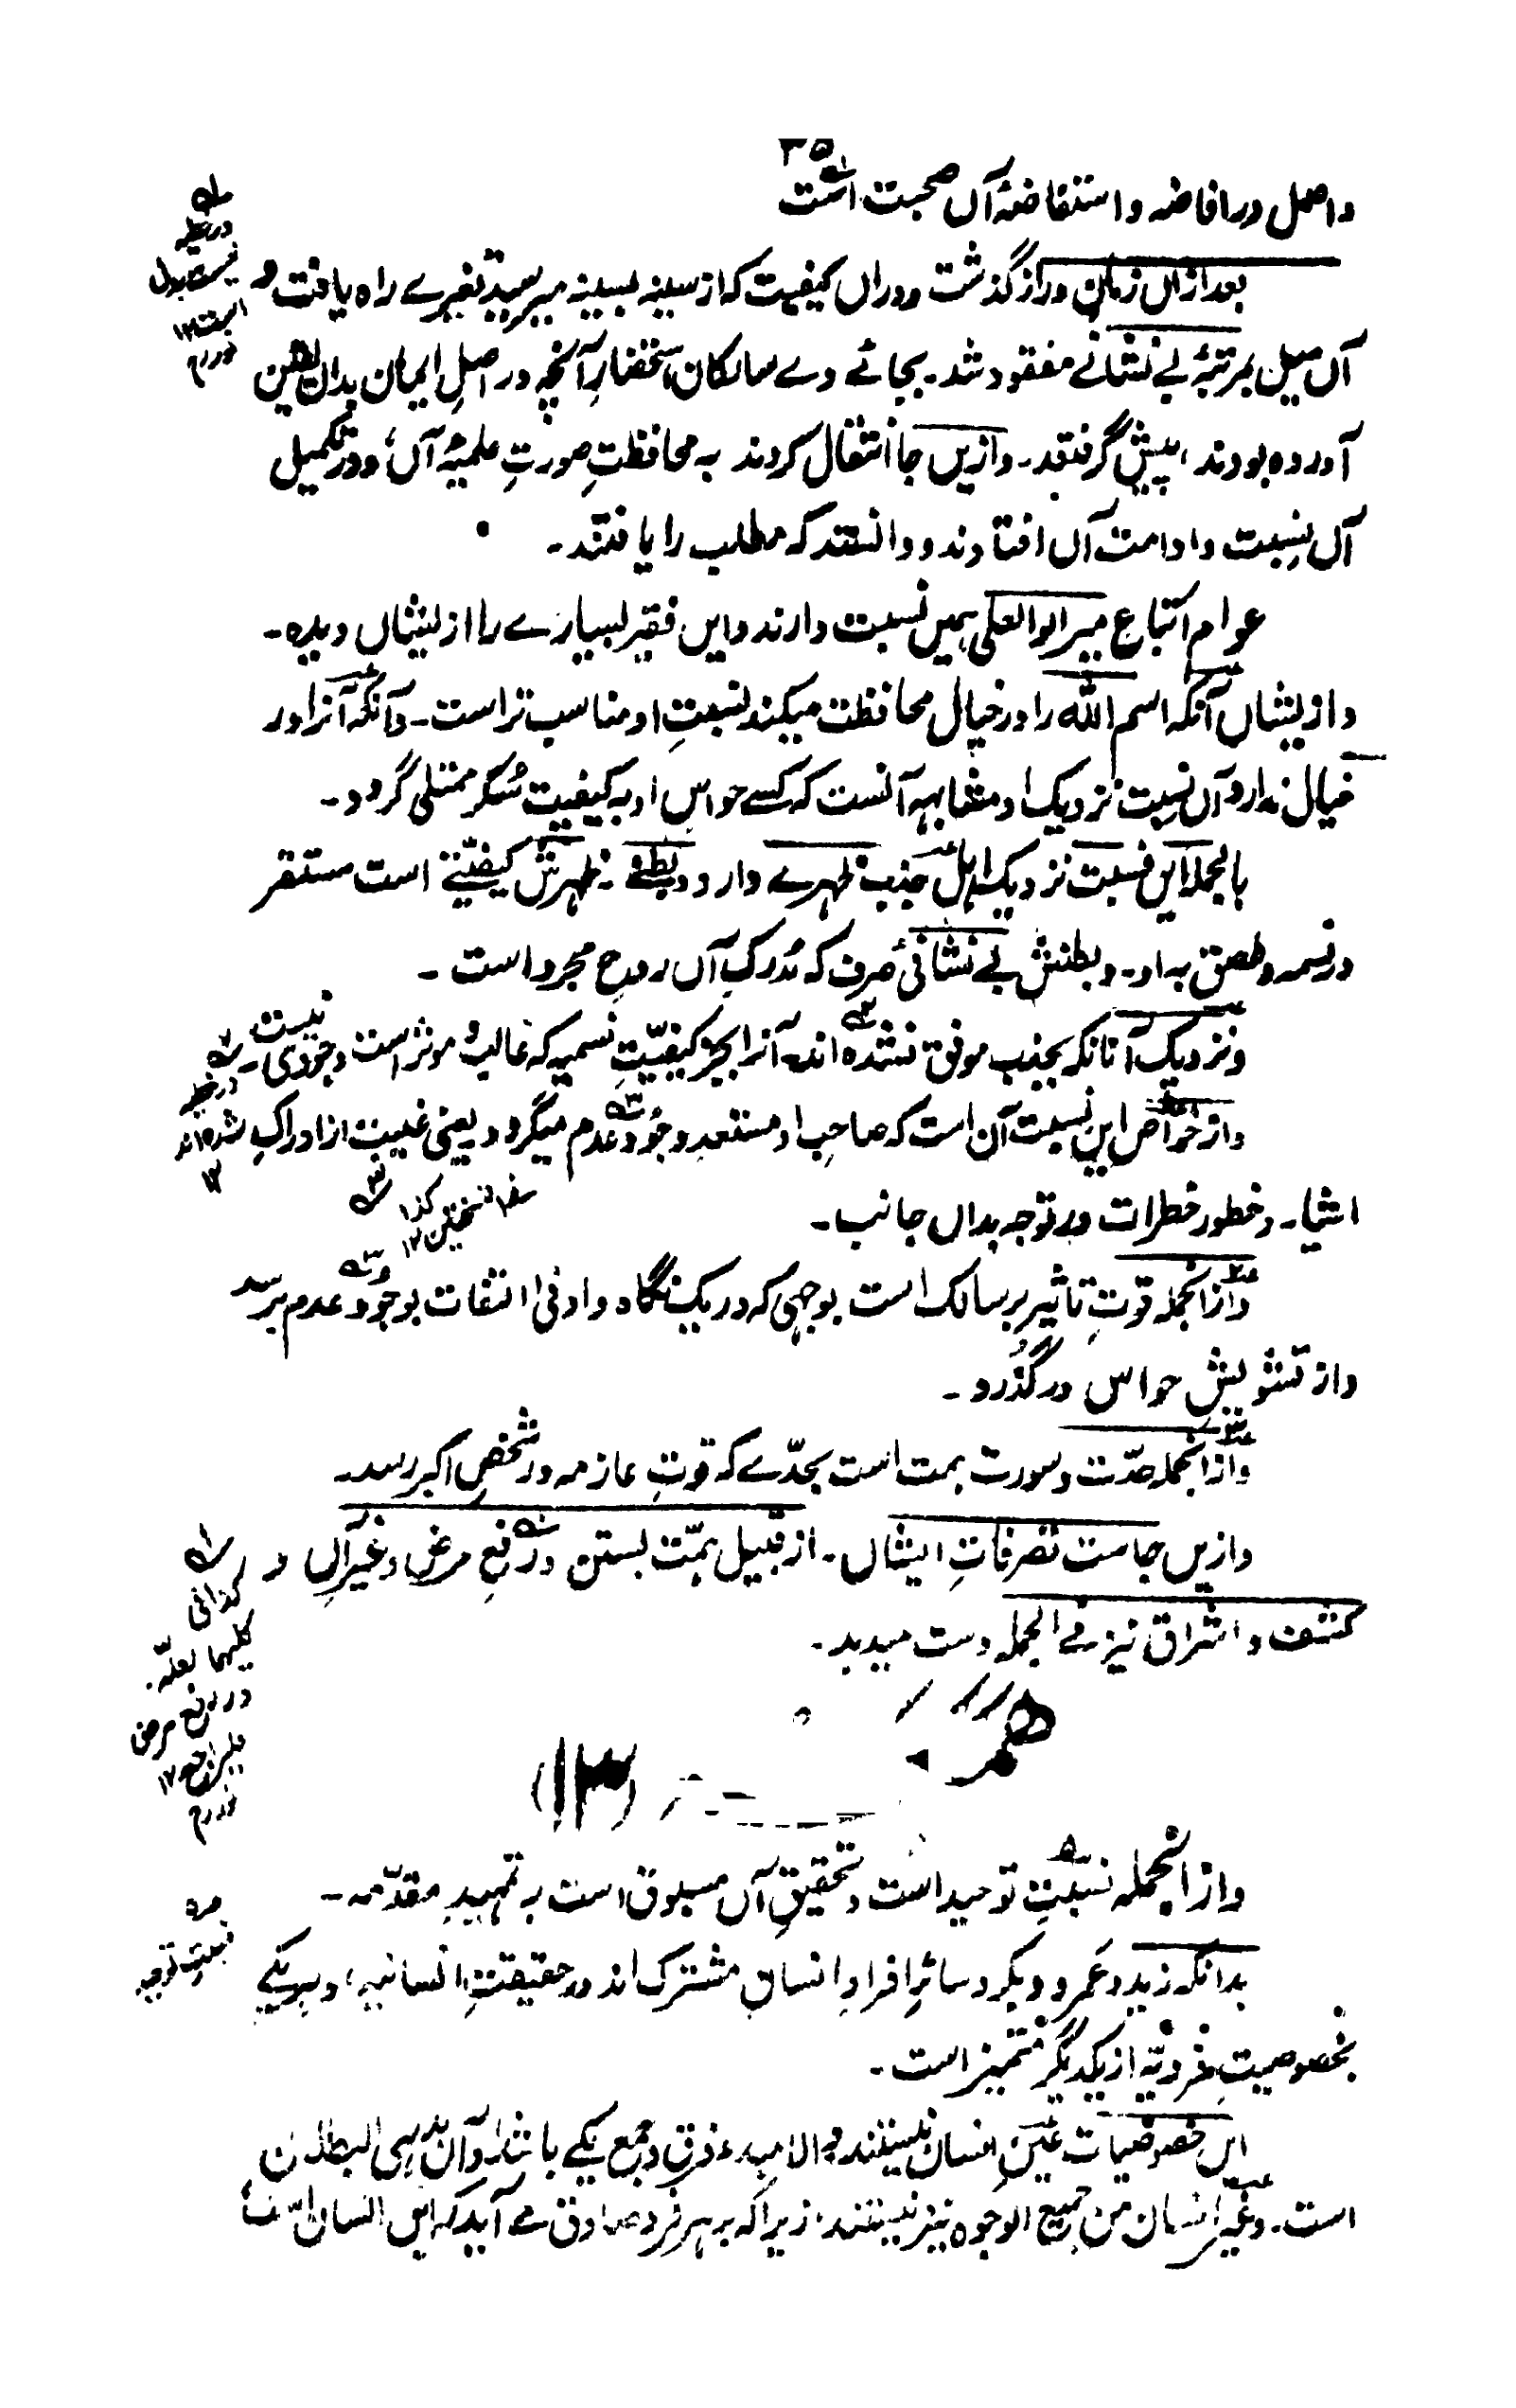 ۳۵
واصل در افاضه و استفاضهٔ آں صحبت است
بعد ازاں زمان دراز گذشت و دراں کیفیت که از سینه بسینه میرسید تغیرے راه یافت و
آں میل بمرتبهٔ بے نشانے مفقود شد۔ بجائے وے سالکان استحضارِ آنچه در اصلِ ایمان بداں یقین
آورده بودند، پیش گرفتند۔ و ازیں جا انتقال کردند به محافظتِ صورتِ علمیهٔ آں، و در تکمیل
آں نسبت و ادامت آں افتادند و دانستند که مطلب را یافتند۔
عوام اتباع میر ابوالعلی ہمیں نسبت دارند و ایں فقیر بسیارے را از ایشاں دیده۔
و از ایشاں آنکه اسم اللّٰه را در خیال محافظت میکند نسبتِ او مناسب تر است۔ و آنکه آنرا در
خیال ندارد آں نسبت نزدیک او مشابهه آنست که کسے حواسِ او به کیفیت سُکر ممتلی گردد۔
بالجمله ایں نسبت نزدیک اہل جذب ظہرے دارد و بطنے۔ ظہرش کیفیّتے است مستقر
در نسمه و ملصق به او۔ و بطنش بے نشانیٔ صرف که مُدرکِ آں روح مجرد است۔
و نزدیک آنانکه بجذب موفق نشده اند آنرا بجز کیفیّتِ نسمیه که غالب و موثر است وجودی نیست
و از خواص ایں نسبت آن است که صاحبِ او مستعدِ وجُودِ عدم میگردد یعنی غیبت از ادراکِ
اشیاء و خطور خطرات در توجه بداں جانب۔
و ازانجمله قوّتِ تاثیر بر سالک است بوجہی که در یک نگاه و ادنیٰ التفات بوجود عدم برسد
و از تشویشِ حواس درگُذرد۔
و ازانجمله حدّت و سورت ہمت است بحدّے که قوتِ عازمه در شخصِ اکبر رسد۔
و ازیں جاست تصرفاتِ ایشاں۔ از قبیل ہمّت بستن در رفعِ مرض و غیرآں و
کشف و اشراق نیز فے الجمله دست میدہد۔
(۱۳)
و ازانجمله نسبتِ توحید است و تحقیقِ آں مسبوق است به تمہیدِ مقدّمه۔
بدانکه زید و عَمرو و بکر و سائرِ افرادِ انسان مشترک اند در حقیقتِ انسانیه، و ہر یکے
بخصوصیتِ فردیّه از یکدیگر متمیز است۔
ایں خصوصیات عینِ انسان نیستند و الا مبدء فرق و جمع یکے باشد و آن بدیہی البطلان
است۔ و غیرِ انسان من جمیع الوجوه نیز نیستند، زیرا که بر ہر فرد صادق مے آید که ایں انسان است
نسبتِ توحید